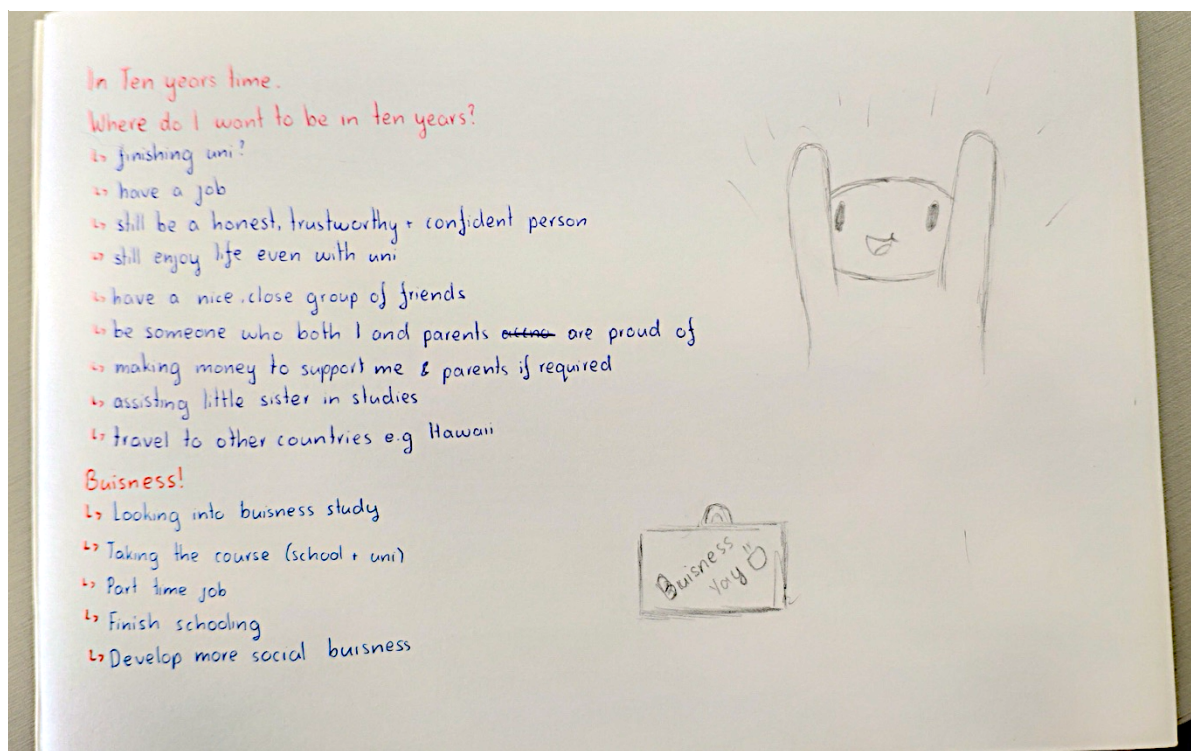 In Ten years time.
Where do I want to be in ten years?
↳ finishing uni?
↳ have a job
↳ still be a honest, trustworthy + confident person
↳ still enjoy life even with uni
↳ have a nice, close group of friends
↳ be someone who both I and parents are proud of
↳ making money to support me & parents if required
↳ assisting little sister in studies
↳ travel to other countries e.g Hawaii
Buisness!
↳ Looking into buisness study
↳ Taking the course (school + uni)
↳ Part time job
↳ Finish schooling
↳ Develop more social buisness
Buisness
Yay